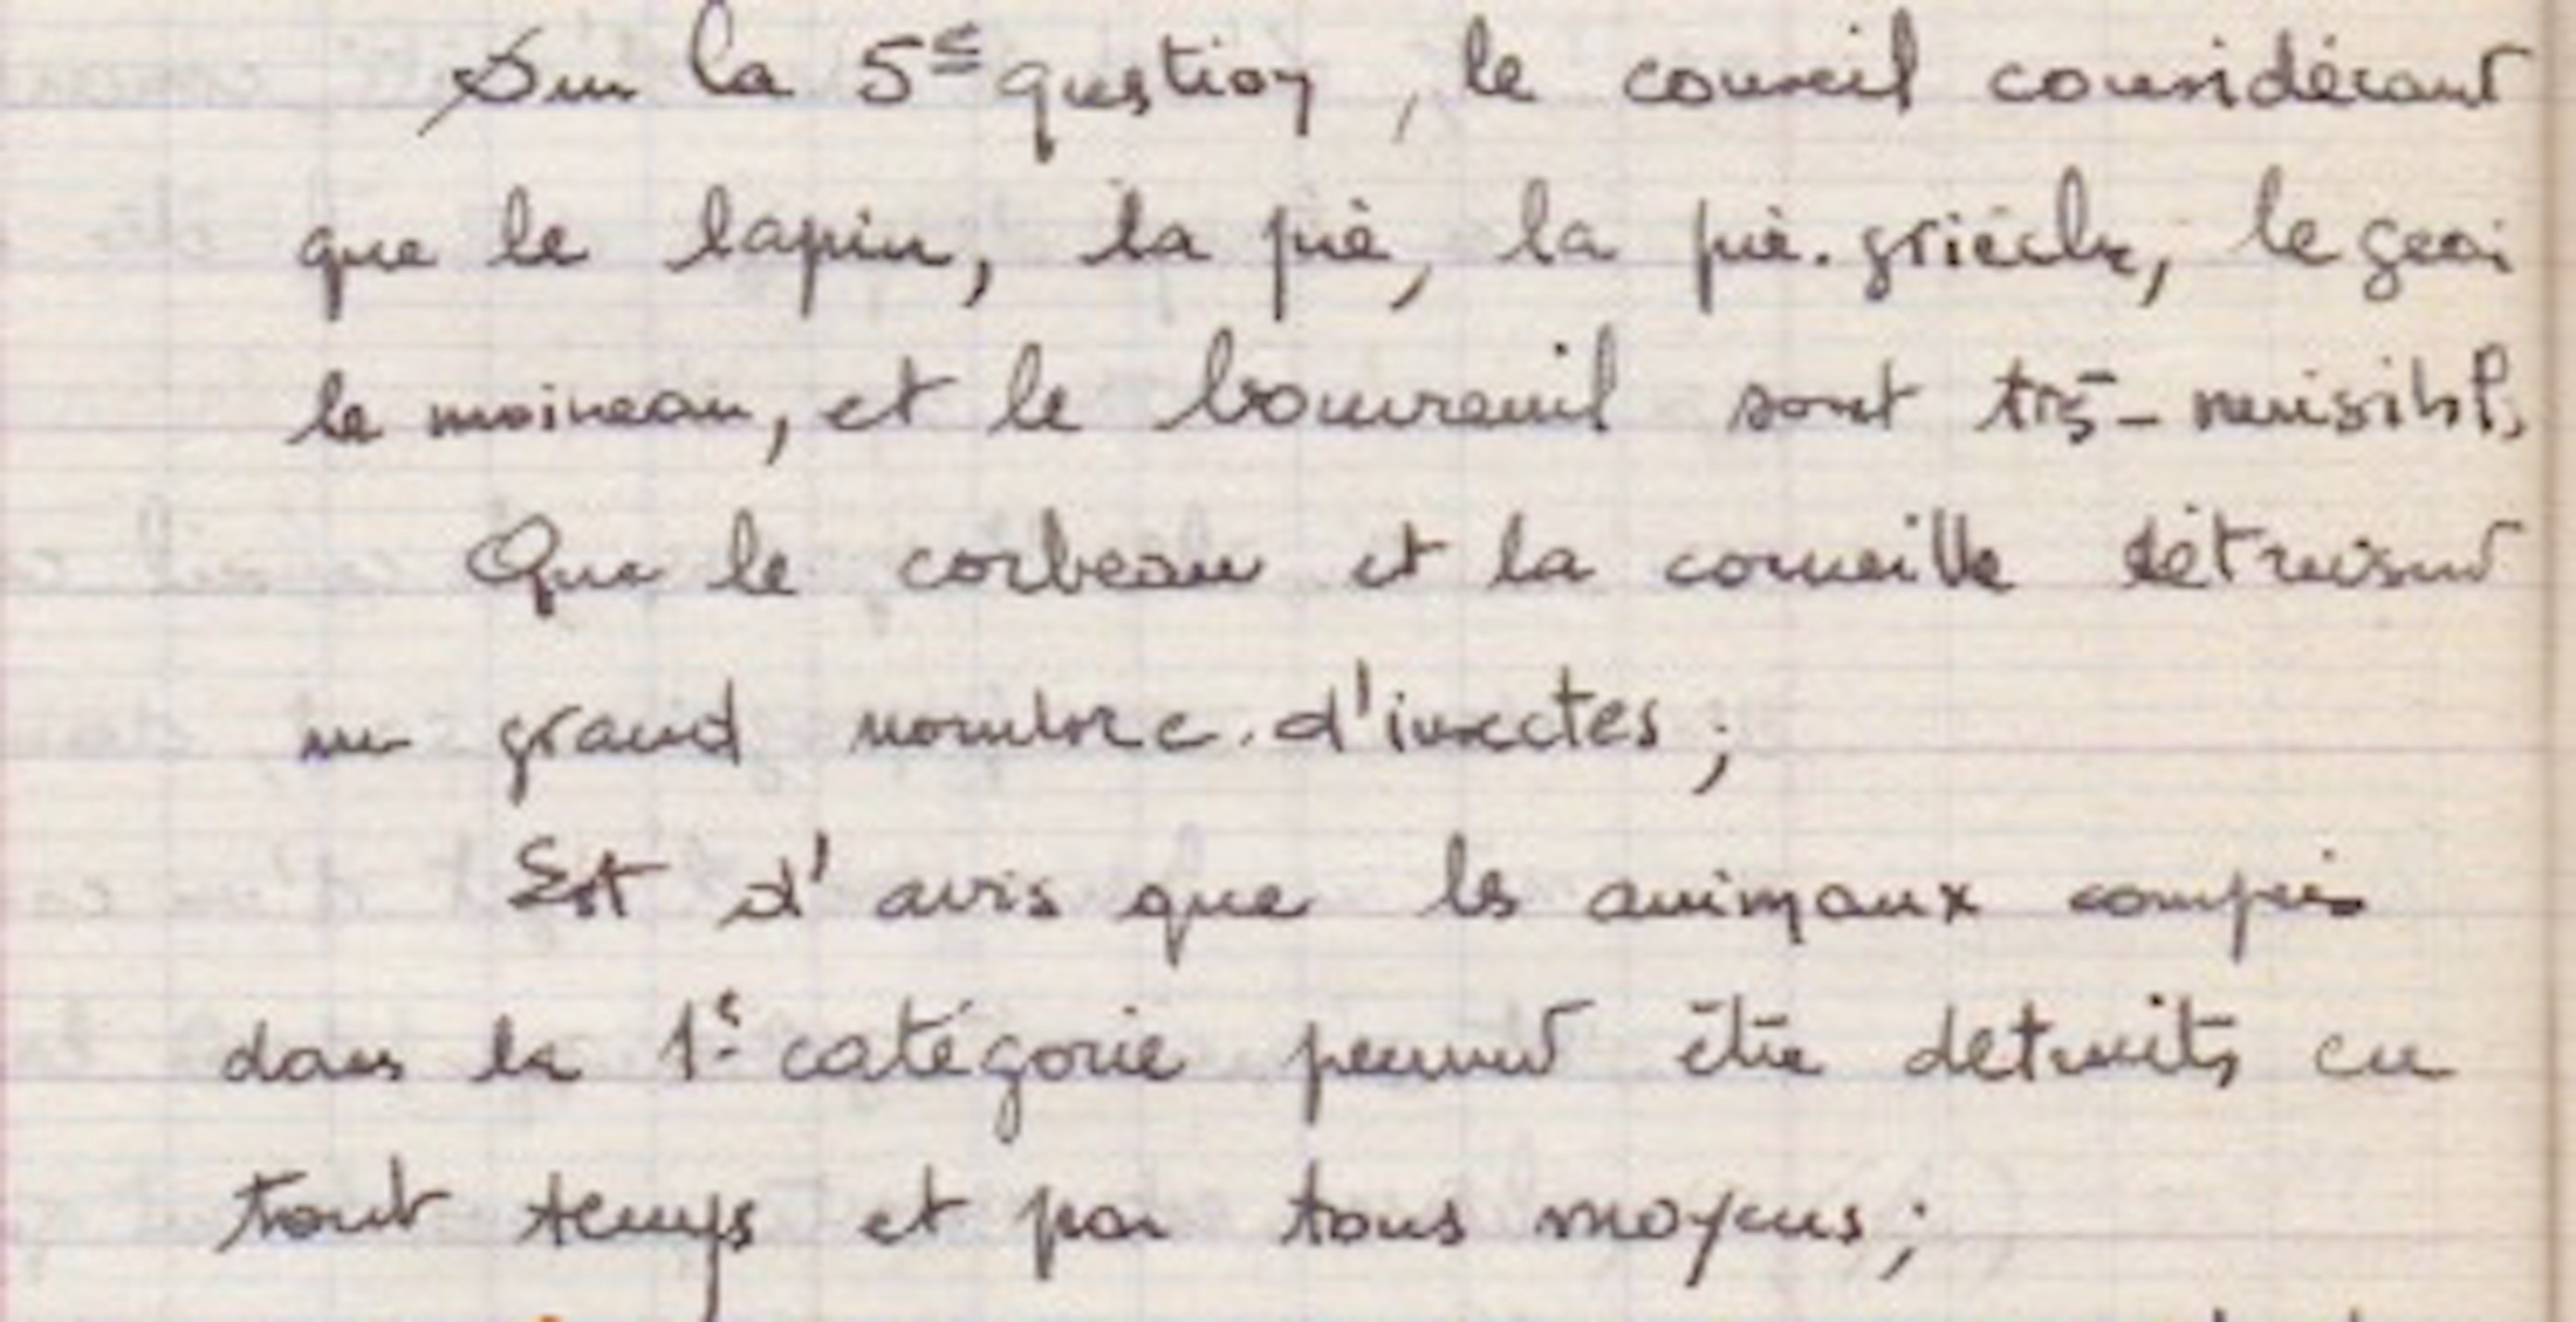 Sur la 5e question, le conseil considérant
que le lapin, la pie, la pie-grièche, le geai
le moineau, et le bouvreuil sont très-nuisibles,
Que le corbeau et la corneille détruisent
un grand nombre d'insectes ;
Est d'avis que les animaux compris
dans la 1e catégorie peuvent être detruits en
tout temps et par tous moyens ;